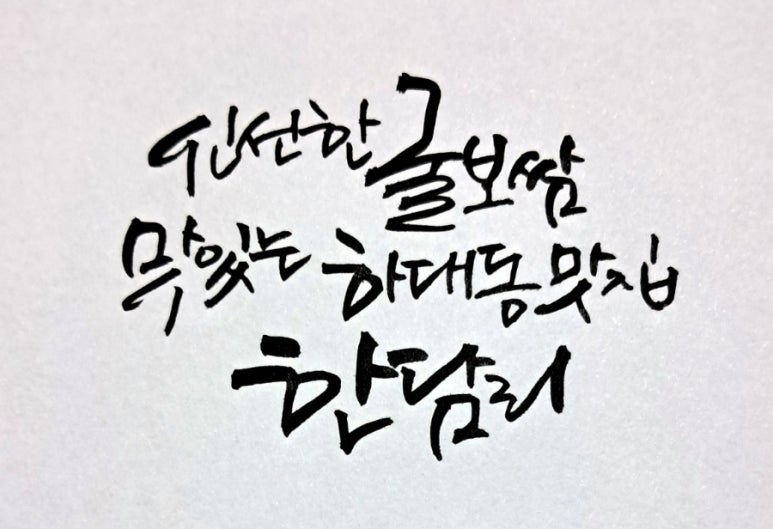 신선한 굴보쌈
맛있는 하대동맛집
한담리